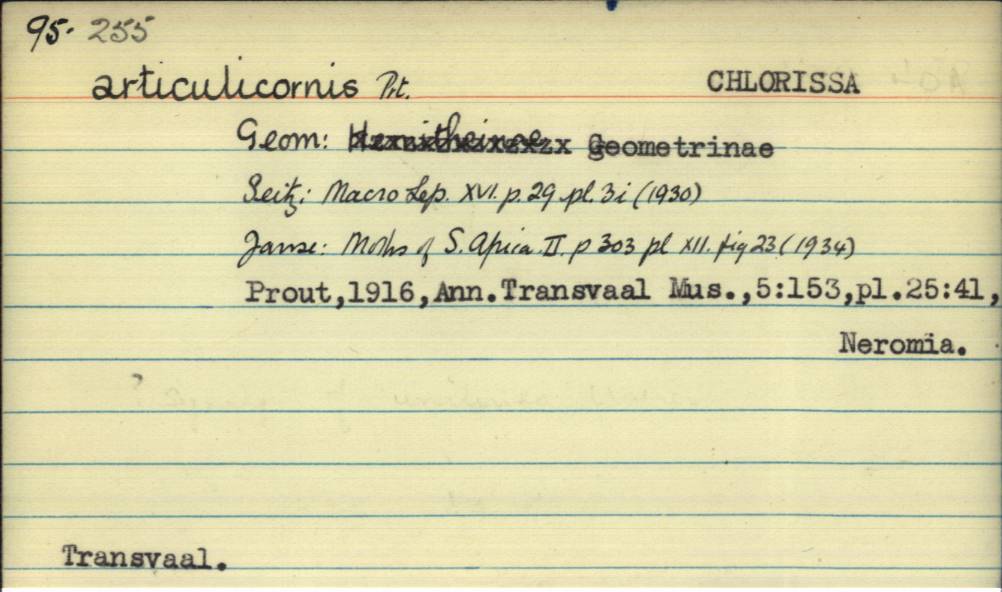 95. 255
articulicornis Prt. CHLORISSA
Geom: Hemitheinae Geometrinae
Seitz: Macro Lep. XVI. p. 29 pl. 3i (1930)
Janse: Moths of S. Africa II. p 303 pl XII. fig 23 (1934)
Prout,1916,Ann.Transvaal Mus.,5:153,pl.25:41,
Neromia.
Transvaal.